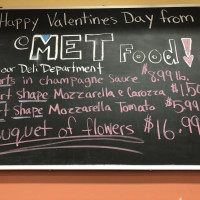 Happy Valentines Day from
CMET Food!
our Deli Department
in champagne Sauce $8.99 lb.
shape Mozzarella & Carozza
shape Mozzarella Tomato $5.99
ouquet of flowers $16.99